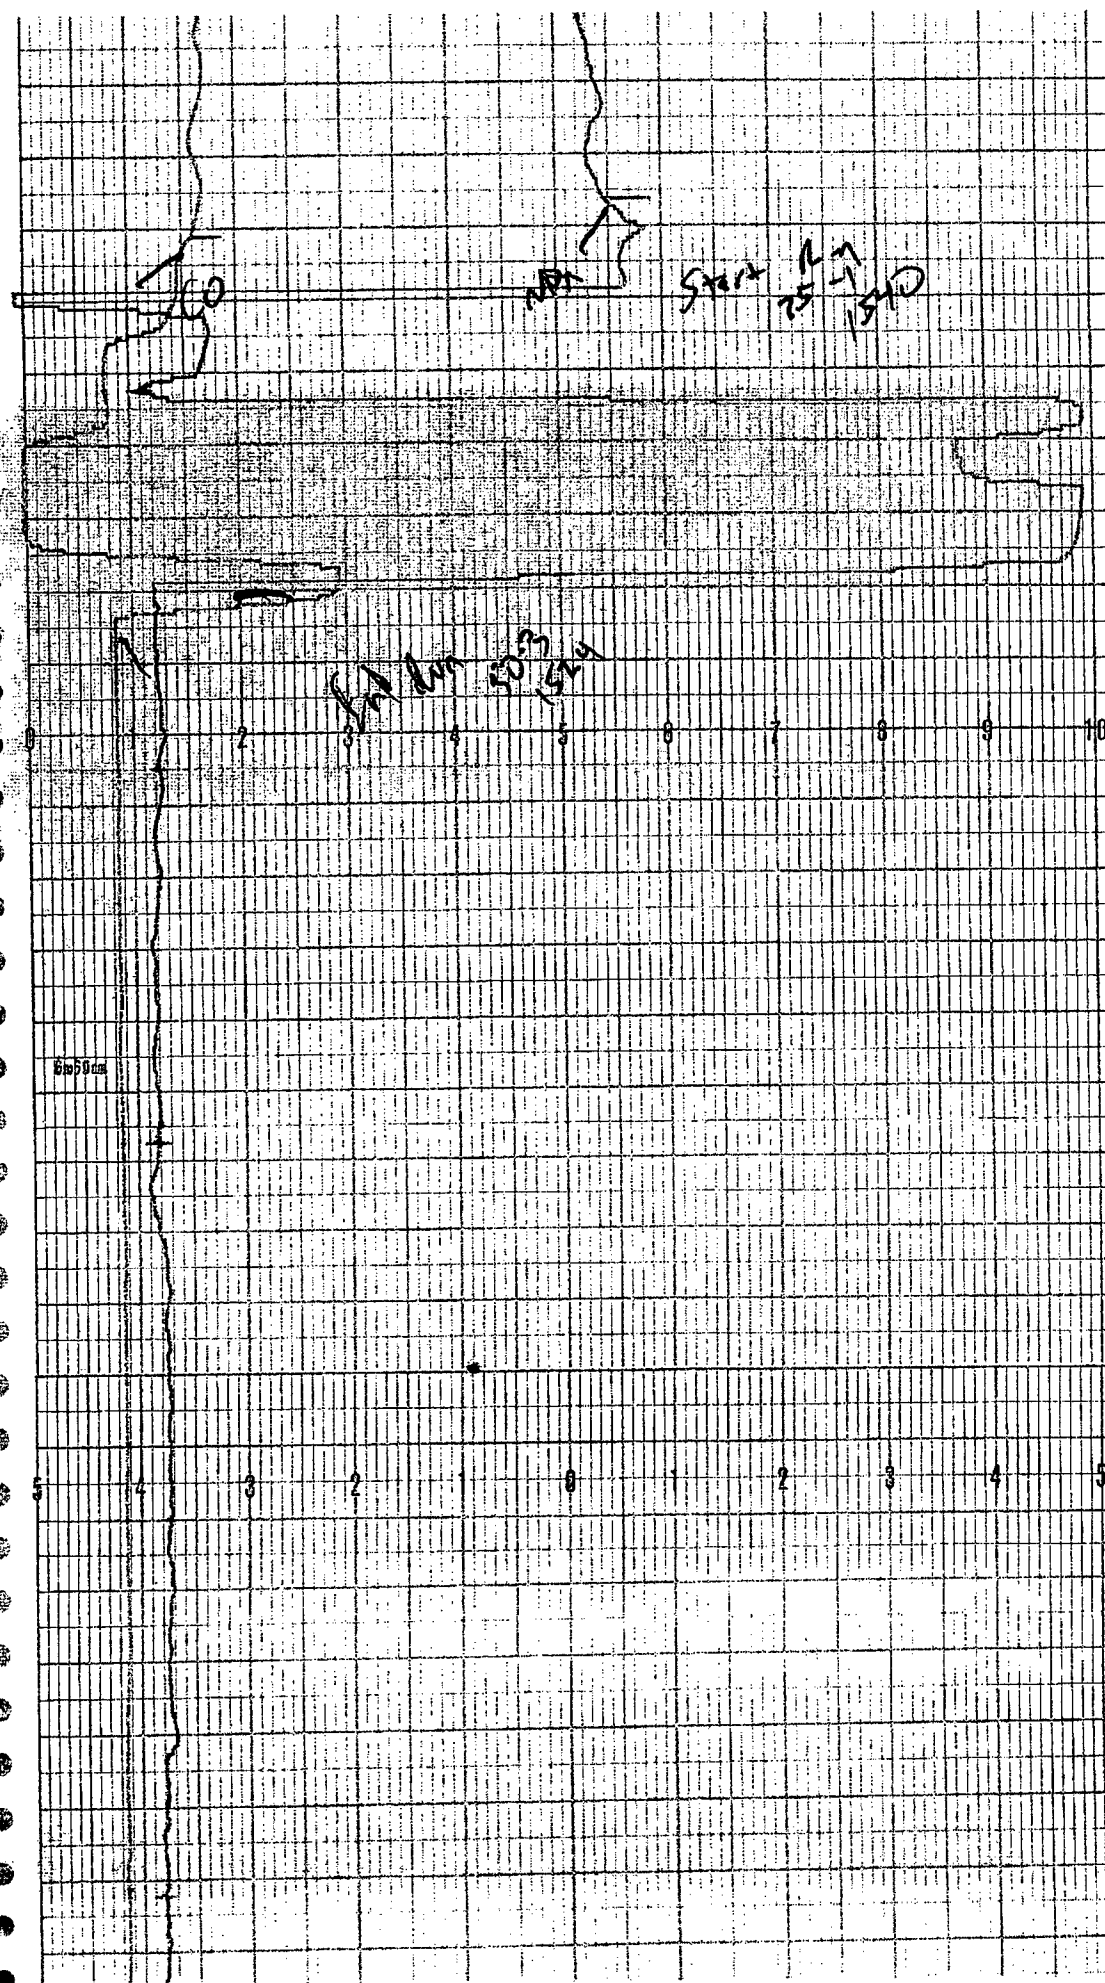 CO
NOx
Start Run
25-1
1540
End Run
50-3
1524
0 2 3 4 5 6 7 8 9 10
6m50cm
5 4 3 2 0 1 2 3 4 5